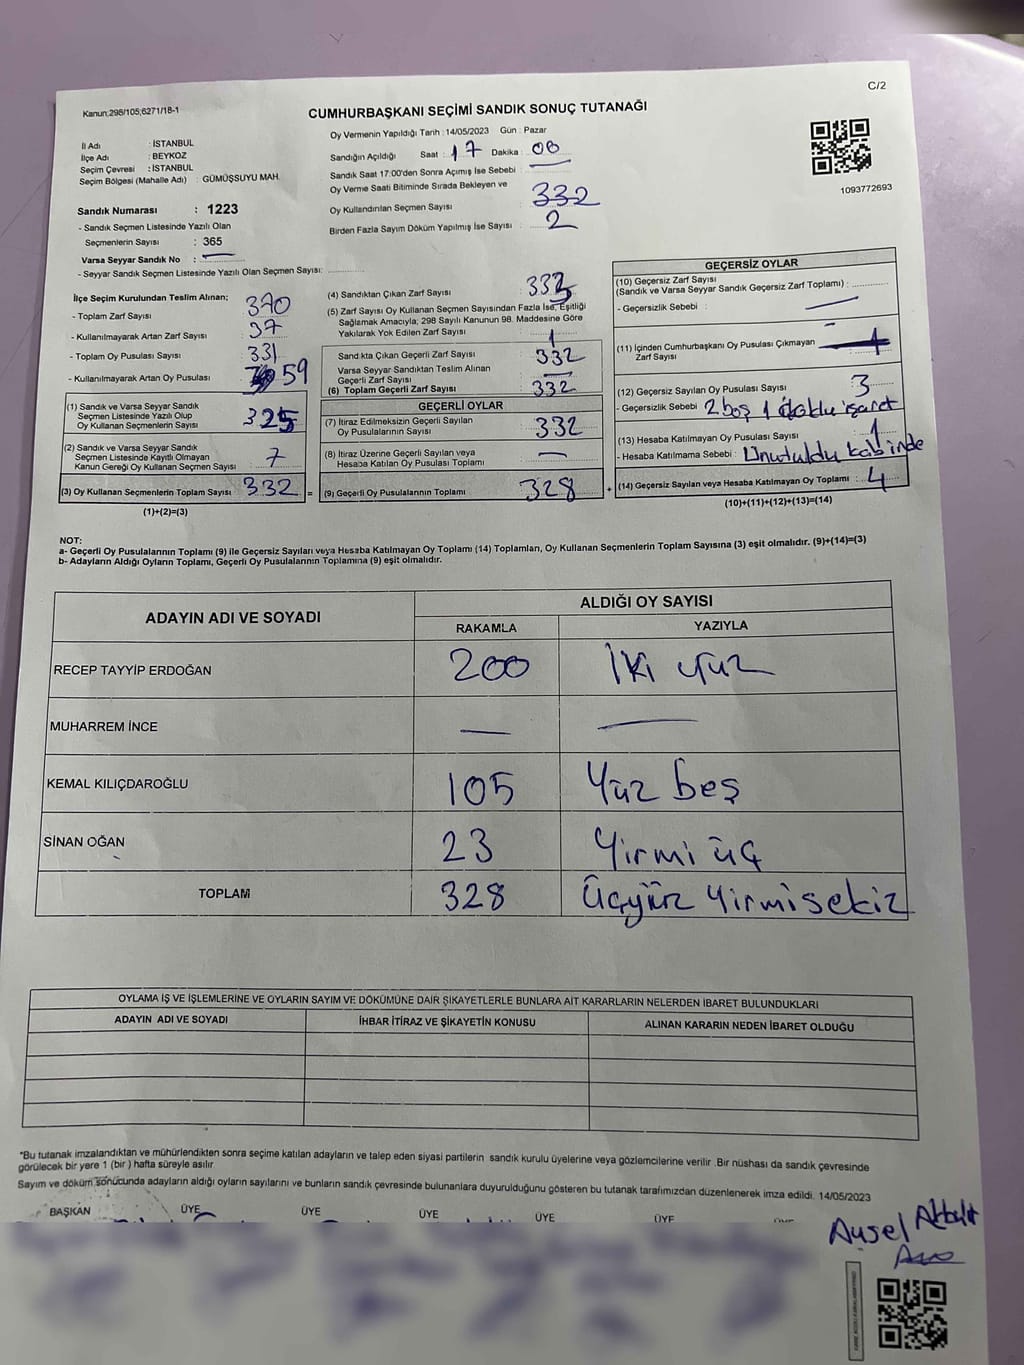 Kanun;298/105;6271/18-1
C/2
CUMHURBAŞKANI SEÇİMİ SANDIK SONUÇ TUTANAĞI
İl Adı : İSTANBUL
İlçe Adı : BEYKOZ
Seçim Çevresi : İSTANBUL
Seçim Bölgesi (Mahalle Adı) : GÜMÜŞSUYU MAH.
Sandık Numarası : 1223
- Sandık Seçmen Listesinde Yazılı Olan
Seçmenlerin Sayısı : 365
Varsa Seyyar Sandık No :
- Seyyar Sandık Seçmen Listesinde Yazılı Olan Seçmen Sayısı:
Oy Vermenin Yapıldığı Tarih : 14/05/2023 Gün : Pazar
Sandığın Açıldığı Saat : 17 Dakika : 08
Sandık Saat 17:00'den Sonra Açımış İse Sebebi :
Oy Verme Saati Bitiminde Sırada Bekleyen ve
Oy Kullandırılan Seçmen Sayısı : 332
Birden Fazla Sayım Döküm Yapılmış İse Sayısı : 2
1093772693
İlçe Seçim Kurulundan Teslim Alınan;
- Toplam Zarf Sayısı : 370
- Kullanılmayarak Artan Zarf Sayısı : 37
- Toplam Oy Pusulası Sayısı : 331
- Kullanılmayarak Artan Oy Pusulası : 59
(1) Sandık ve Varsa Seyyar Sandık
Seçmen Listesinde Yazılı Olup
Oy Kullanan Seçmenlerin Sayısı : 325
(2) Sandık ve Varsa Seyyar Sandık
Seçmen Listesinde Kayıtlı Olmayan
Kanun Gereği Oy Kullanan Seçmen Sayısı : 7
(3) Oy Kullanan Seçmenlerin Toplam Sayısı : 332 =
(1)+(2)=(3)
(4) Sandıktan Çıkan Zarf Sayısı : 333
(5) Zarf Sayısı Oy Kullanan Seçmen Sayısından Fazla İse, Eşitliği
Sağlamak Amacıyla; 298 Sayılı Kanunun 98. Maddesine Göre
Yakılarak Yok Edilen Zarf Sayısı : 1
Sandıkta Çıkan Geçerli Zarf Sayısı : 332
Varsa Seyyar Sandıktan Teslim Alınan
Geçerli Zarf Sayısı
(6) Toplam Geçerli Zarf Sayısı : 332
GEÇERLİ OYLAR
(7) İtiraz Edilmeksizin Geçerli Sayılan
Oy Pusulalarının Sayısı : 332
(8) İtiraz Üzerine Geçerli Sayılan veya
Hesaba Katılan Oy Pusulası Toplamı :
(9) Geçerli Oy Pusulalarının Toplamı : 328 +
GEÇERSİZ OYLAR
(10) Geçersiz Zarf Sayısı
(Sandık ve Varsa Seyyar Sandık Geçersiz Zarf Toplamı) :
- Geçersizlik Sebebi :
(11) İçinden Cumhurbaşkanı Oy Pusulası Çıkmayan
Zarf Sayısı
(12) Geçersiz Sayılan Oy Pusulası Sayısı : 3
- Geçersizlik Sebebi : 2 boş 1 işaret
(13) Hesaba Katılmayan Oy Pusulası Sayısı : 1
- Hesaba Katılmama Sebebi : Unutuldu kabinde
(14) Geçersiz Sayılan veya Hesaba Katılmayan Oy Toplamı : 4
(10)+(11)+(12)+(13)=(14)
NOT:
a- Geçerli Oy Pusulalarının Toplamı (9) ile Geçersiz Sayılan veya Hesaba Katılmayan Oy Toplamı (14) Toplamları, Oy Kullanan Seçmenlerin Toplam Sayısına (3) eşit olmalıdır. (9)+(14)=(3)
b- Adayların Aldığı Oyların Toplamı, Geçerli Oy Pusulalarının Toplamına (9) eşit olmalıdır.
ADAYIN ADI VE SOYADI
ALDIĞI OY SAYISI
RAKAMLA YAZIYLA
RECEP TAYYİP ERDOĞAN 200 İki yüz
MUHARREM İNCE
KEMAL KILIÇDAROĞLU 105 Yüz beş
SİNAN OĞAN 23 Yirmi üç
TOPLAM 328 Üçyüz Yirmisekiz
OYLAMA İŞ VE İŞLEMLERİNE VE OYLARIN SAYIM VE DÖKÜMÜNE DAİR ŞİKAYETLERLE BUNLARA AİT KARARLARIN NELERDEN İBARET BULUNDUKLARI
ADAYIN ADI VE SOYADI İHBAR İTİRAZ VE ŞİKAYETİN KONUSU ALINAN KARARIN NEDEN İBARET OLDUĞU
*Bu tutanak imzalandıktan ve mühürlendikten sonra seçime katılan adayların ve talep eden siyasi partilerin sandık kurulu üyelerine veya gözlemcilerine verilir .Bir nüshası da sandık çevresinde
görülecek bir yere 1 (bir ) hafta süreyle asılır
Sayım ve döküm sonucunda adayların aldığı oyların sayılarını ve bunların sandık çevresinde bulunanlara duyurulduğunu gösteren bu tutanak tarafımızdan düzenlenerek imza edildi. 14/05/2023
BAŞKAN ÜYE ÜYE ÜYE ÜYE ÜYE
Aysel Akbulut